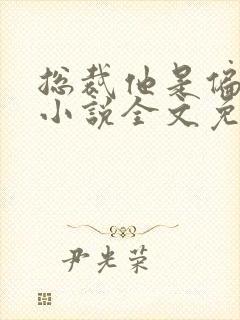 总裁他是偏
小说全文免
尹光荣